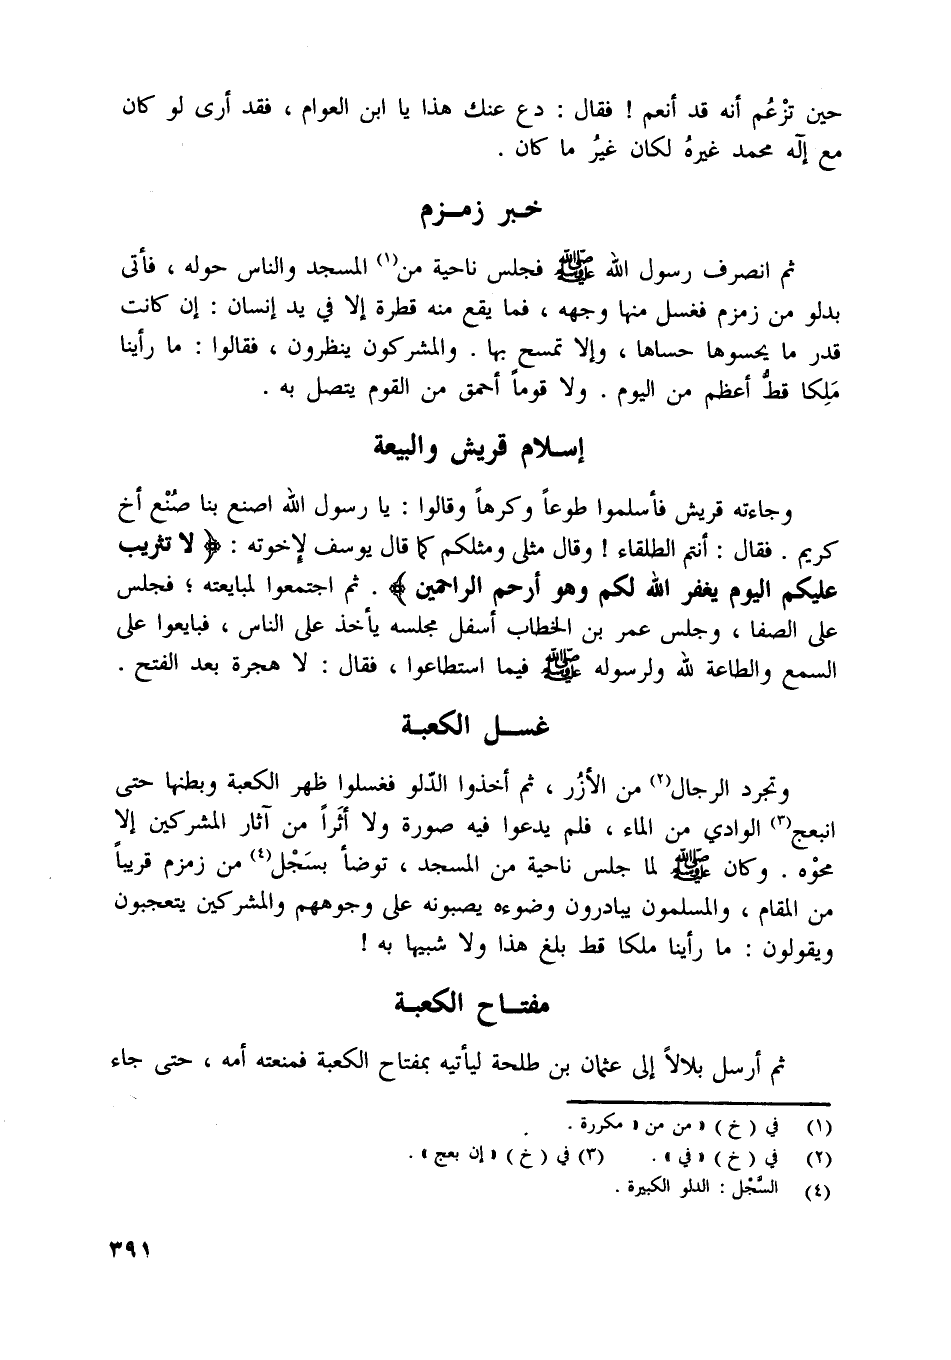 حين تزْعُم أنه قد أنعم ! فقال : دع عنك هذا يا ابن العوام ، فقد أرى لو كان
مع إلٓه محمد غيرهُ لكان غيرُ ما كان .
خبر زمزم
ثم انصرف رسول الله ﷺ فجلس ناحية من(١) المسجد والناس حوله ، فأتى
بدلو من زمزم فغسل منها وجهه ، فما يقع منه قطرة إلا في يد إنسان : إن كانت
قدر ما يحسوها حساها ، وإلا تمسح بها . والمشركون ينظرون ، فقالوا : ما رأينا
مَلِكا قطُّ أعظم من اليوم . ولا قوماً أحمق من القوم يتصل به .
إسلام قريش والبيعة
وجاءته قريش فأسلموا طوعاً وكرهاً وقالوا : يا رسول الله اصنع بنا صُنْع أخ
كريم . فقال : أنتم الطلقاء ! وقال مثلي ومثلكم كما قال يوسف لإخوته : ﴿ لا تثريب
عليكم اليوم يغفر الله لكم وهو أرحم الراحمين ﴾ . ثم اجتمعوا لمبايعته ؛ فجلس
على الصفا ، وجلس عمر بن الخطاب أسفل مجلسه يأخذ على الناس ، فبايعوا على
السمع والطاعة لله ولرسوله ﷺ فيما استطاعوا ، فقال : لا هجرة بعد الفتح .
غسل الكعبة
وتجرد الرجال(٢) من الأزُر ، ثم أخذوا الدّلو فغسلوا ظهر الكعبة وبطنها حتى
انبعج(٣) الوادي من الماء ، فلم يدعوا فيه صورة ولا أثَراً من آثار المشركين إلا
محوْه . وكان ﷺ لما جلس ناحية من المسجد ، توضأ بسَجْل(٤) من زمزم قريباً
من المقام ، والمسلمون يبادرون وضوءه يصبونه على وجوههم والمشركين يتعجبون
ويقولون : ما رأينا ملكا قط بلغ هذا ولا شبيها به !
مفتاح الكعبة
ثم أرسل بلالاً إلى عثمان بن طلحة ليأتيه بمفتاح الكعبة فمنعته أمه ، حتى جاء
(١) في ( خ ) « من من » مكررة .
(٢) في ( خ ) « في » . (٣) في ( خ ) « إن بعج » .
(٤) السَّجْل : الدلو الكبيرة .
٣٩١